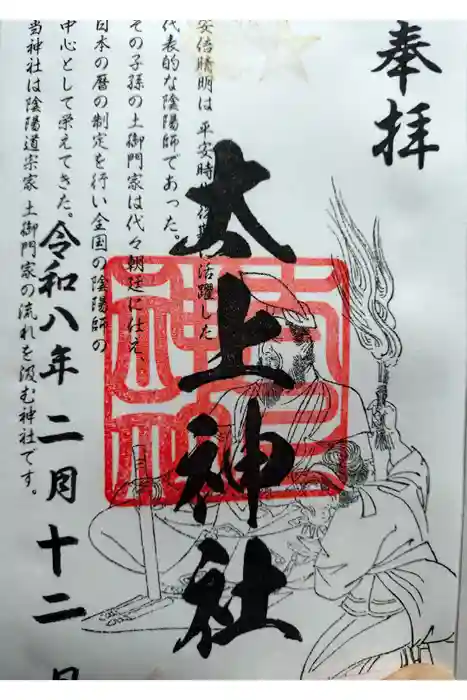 奉拝
安倍晴明は 平安時代後期に活躍した
代表的な陰陽師であった。
その子孫の土御門家は代々朝廷に仕え、
日本の暦の制定を行い全国の陰陽師の
中心として栄えてきた。
当神社は陰陽道宗家 土御門家の流れを汲む神社です。
太上神社
令和八年 二月十二日